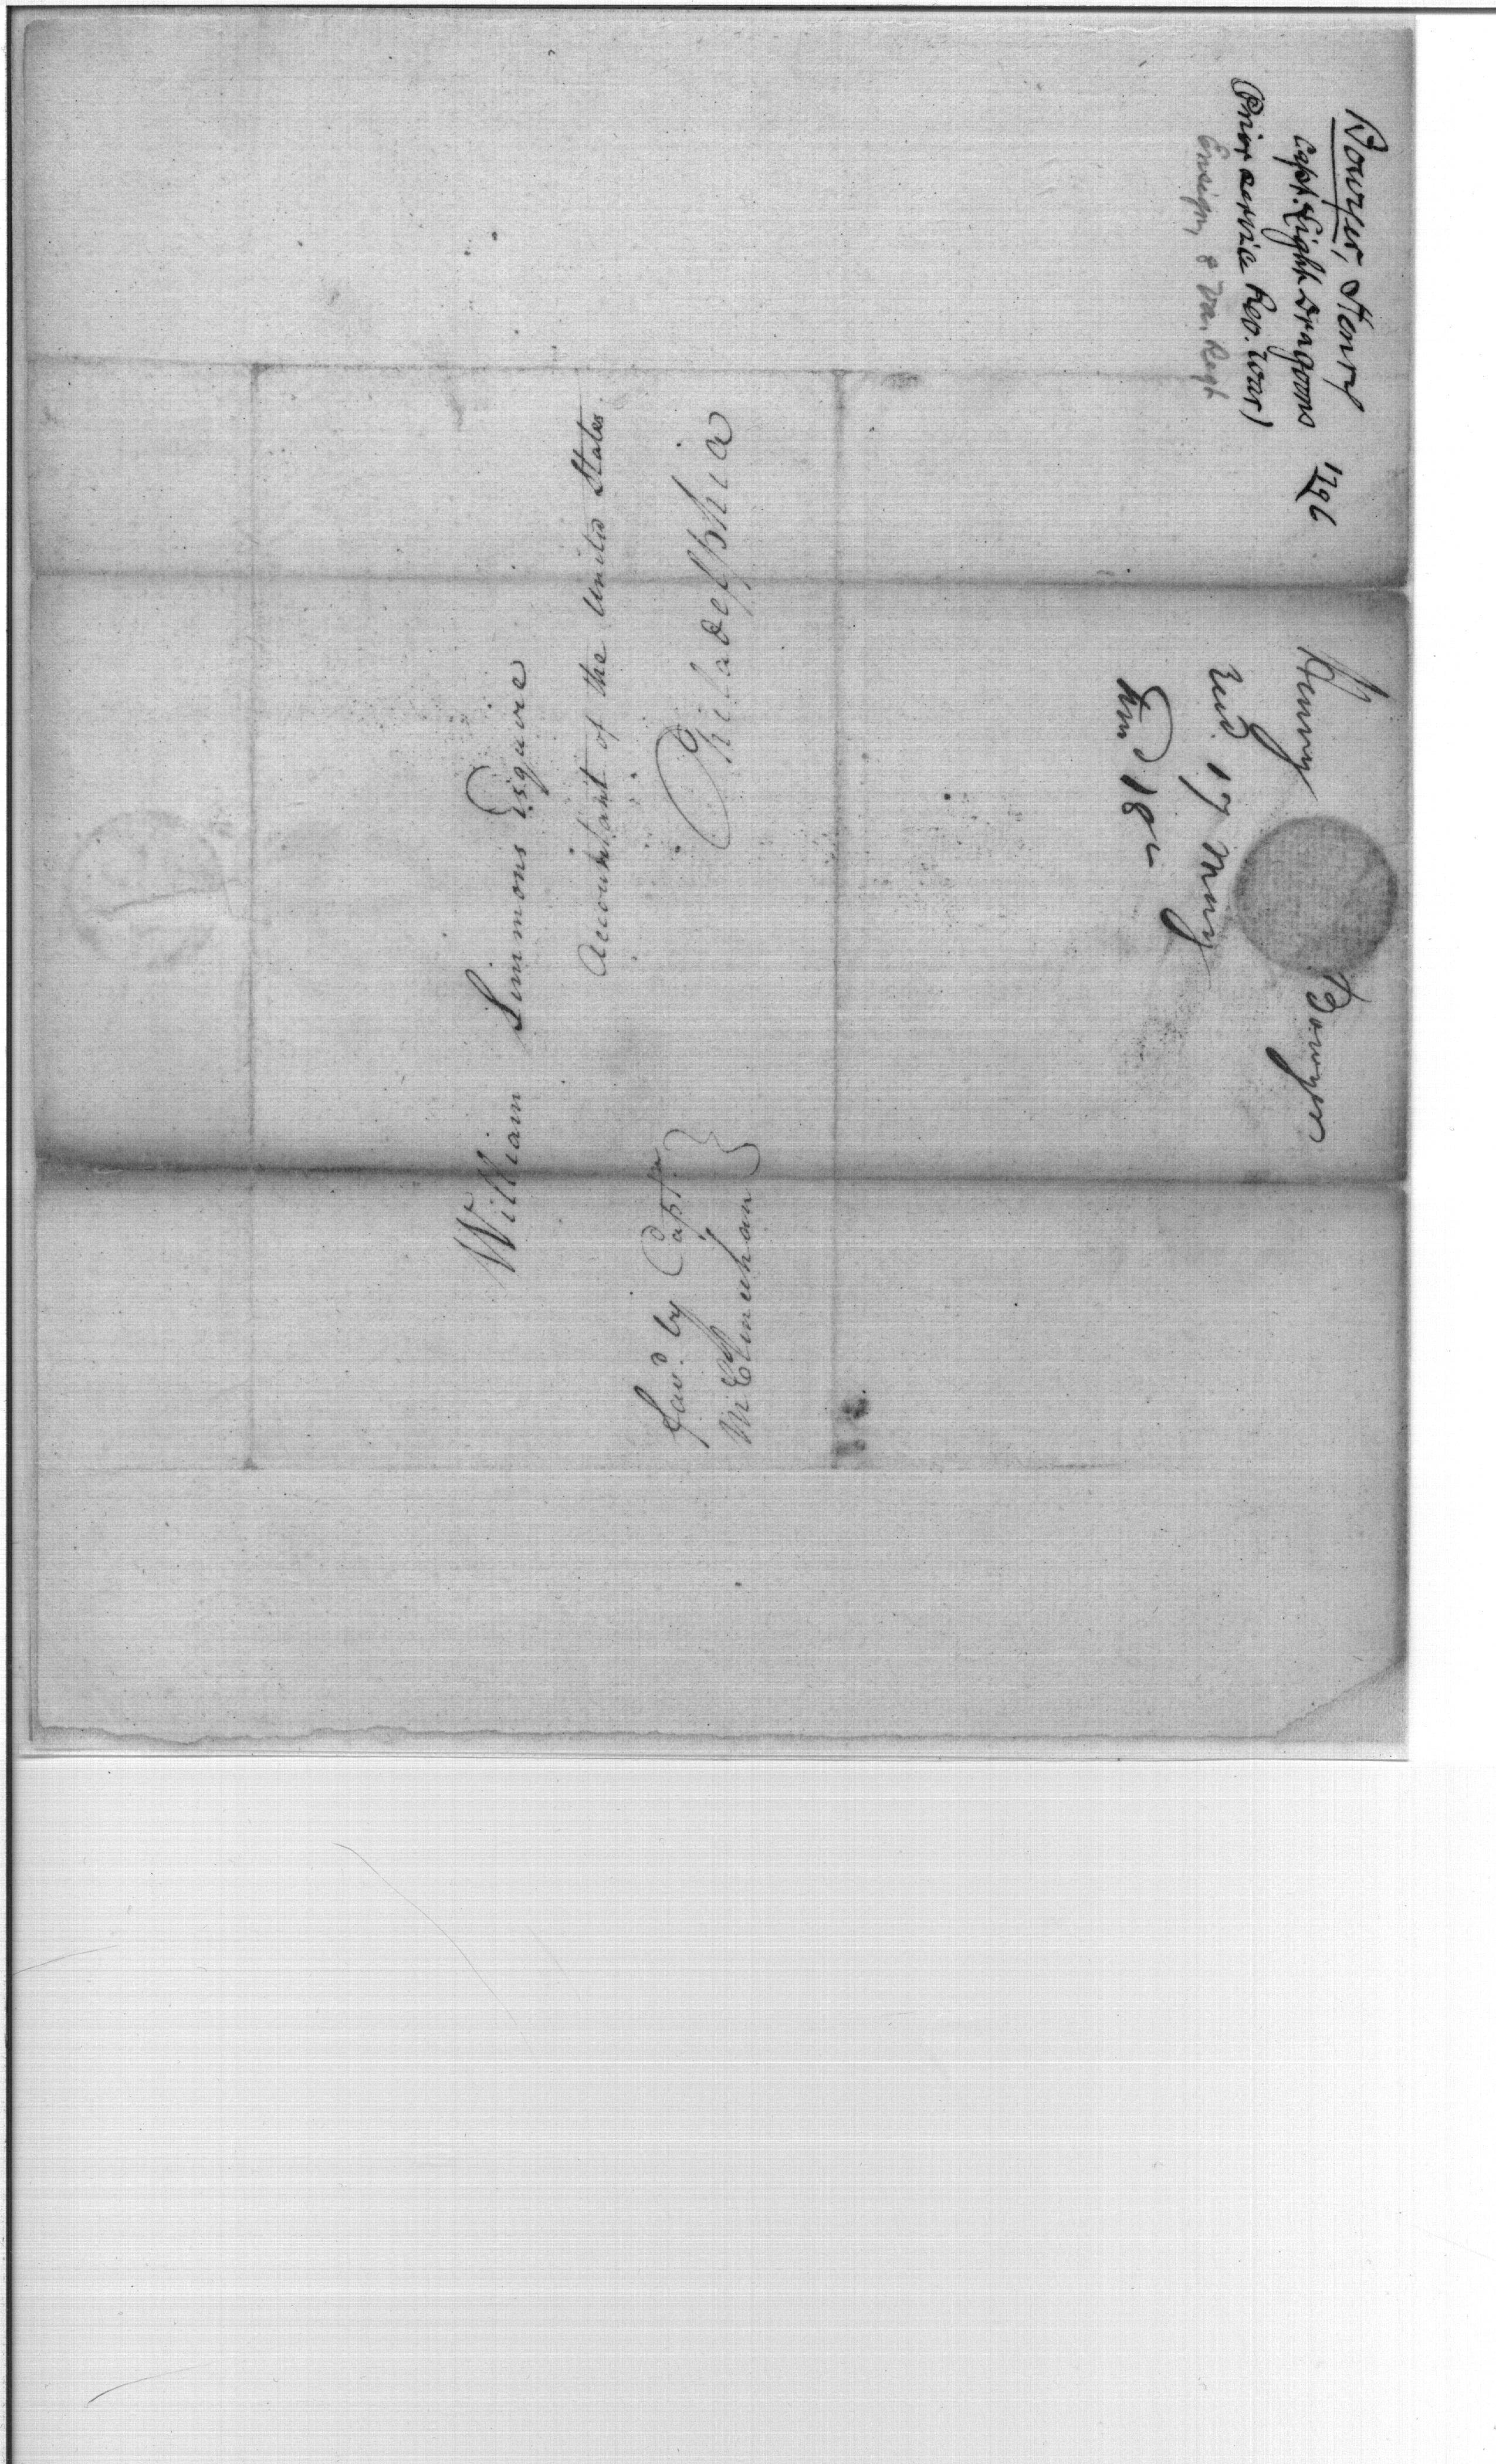 Bowyer, Henry
Capt. Light Dragoons 1796
(Prior service Rev. War)
Ensign, 8 Va. Regt
Henry Bowyer
17 May
18
William Simmons Esquire
Accountant of the United States
Philadelphia
favd. by Captn
McElheneehan